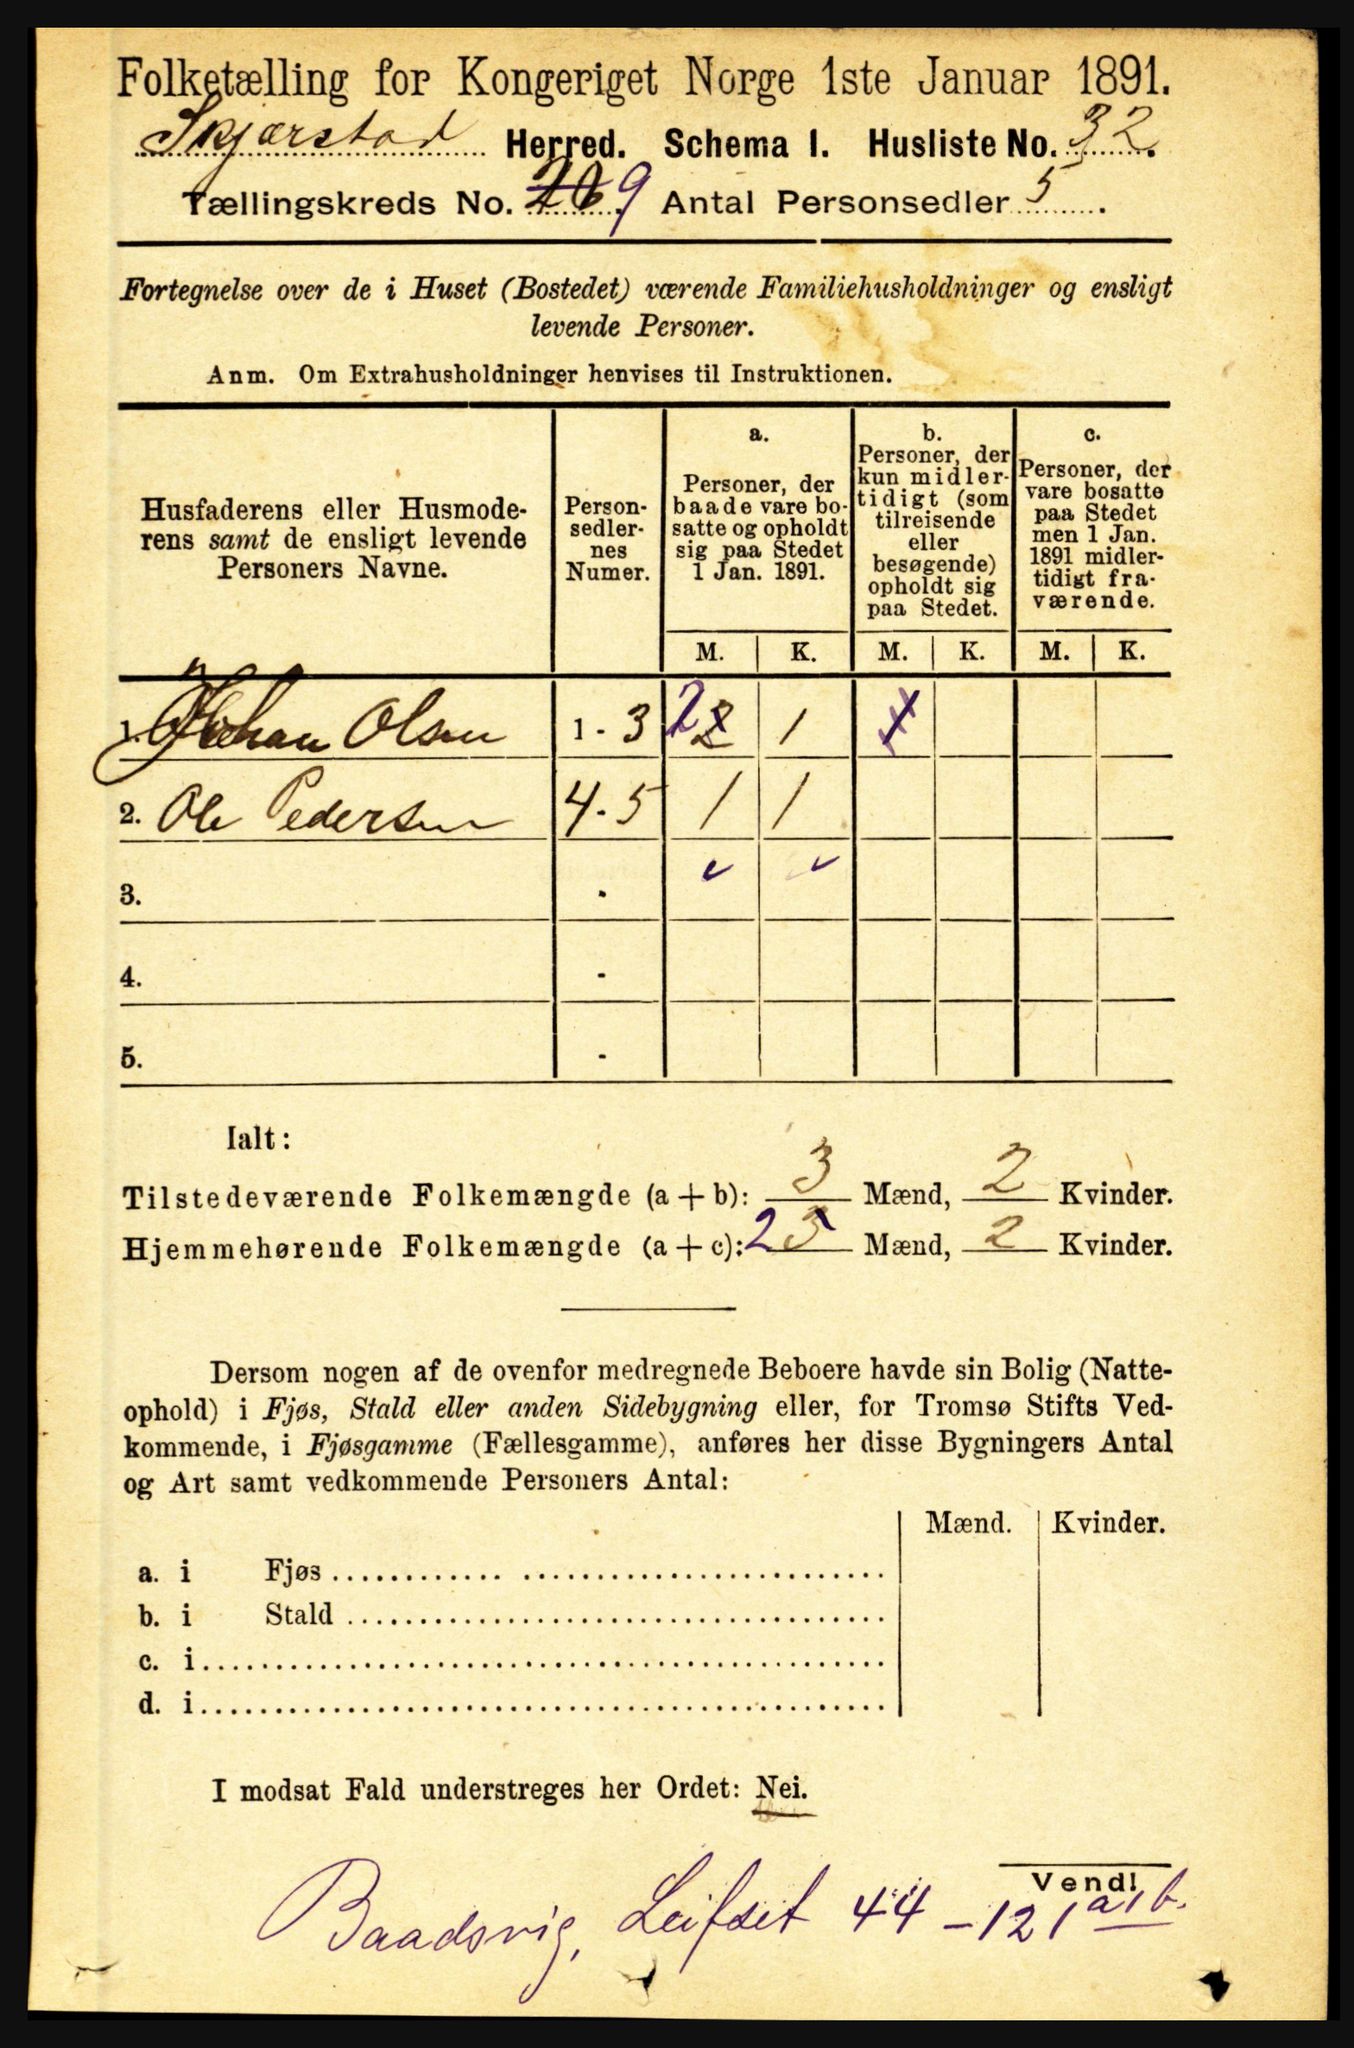 Folketælling for Kongeriget Norge 1ste Januar 1891.
Skjærstad Herred. Schema I. Husliste No. 32.
Tællingskreds No. 9 Antal Personsedler 5.
Fortegnelse over de i Huset (Bostedet) værende Familiehusholdninger og ensligt
levende Personer.
Anm. Om Extrahusholdninger henvises til Instruktionen.
Husfaderens eller Husmode-
rens samt de ensligt levende
Personers Navne.
Person-
sedler-
nes
Numer.
a.
Personer, der
baade vare bo-
satte og opholdt
sig paa Stedet
1 Jan. 1891.
b.
Personer, der
kun midler-
tidigt (som
tilreisende
eller
besøgende)
opholdt sig
paa Stedet.
c.
Personer, der
vare bosatte
paa Stedet
men 1 Jan.
1891 midler-
tidigt fra-
værende.
M. K. M. K. M. K.
1. Johan Olsen 1 - 3 2 2 1 1
2. Ole Pedersen 4 - 5 1 1
3. -
4. -
5. -
Ialt:
Tilstedeværende Folkemængde (a + b): 3 Mænd, 2 Kvinder.
Hjemmehørende Folkemængde (a + c): 2 3 Mænd, 2 Kvinder.
Dersom nogen af de ovenfor medregnede Beboere havde sin Bolig (Natte-
ophold) i Fjøs, Stald eller anden Sidebygning eller, for Tromsø Stifts Ved-
kommende, i Fjøsgamme (Fællesgamme), anføres her disse Bygningers Antal
og Art samt vedkommende Personers Antal:
Mænd. Kvinder.
a. i Fjøs
b. i Stald
c. i
d. i
I modsat Fald understreges her Ordet: Nei.
Vend!
Baadsvig, Leifset 44 - 121 a1b.